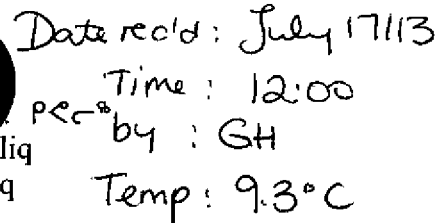 Date rec'd: July 17/13
Time: 12:00
by : GH
liq
q
Temp: 9.3°C